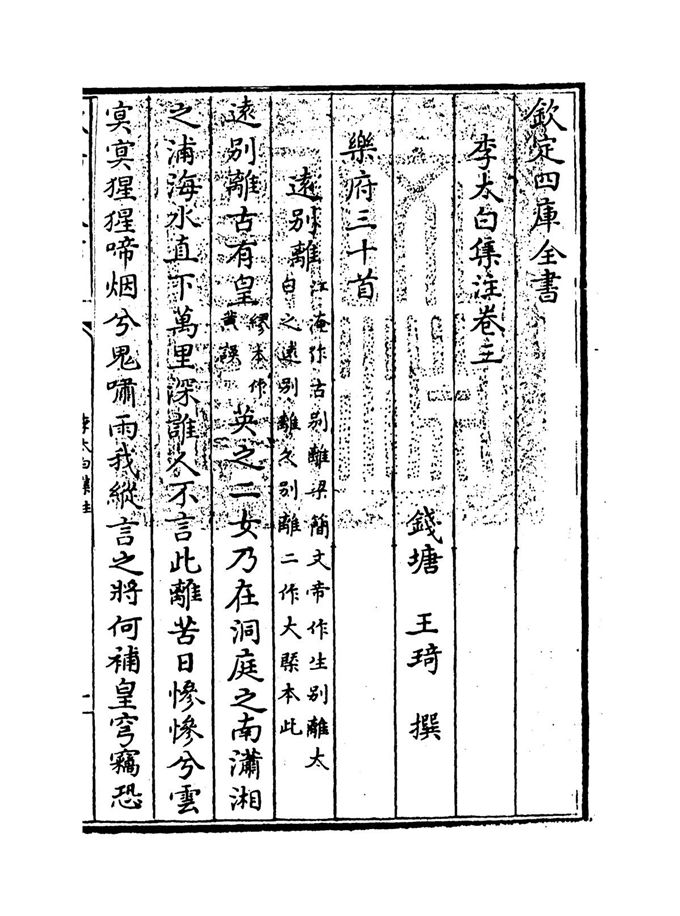 欽定四庫全書
李太白集注卷三
錢塘 王琦 撰
樂府三十首
遠別離江淹作古別離梁簡文帝作生別離太
白之遠別離久別離二作大槩本此
遠別離古有皇繆本作黃誤英之二女乃在洞庭之南瀟湘
之浦海水直下萬里深誰人不言此離苦日慘慘兮雲
冥冥猩猩啼烟兮鬼嘯雨我縱言之將何補皇穹竊恐
李太白集注